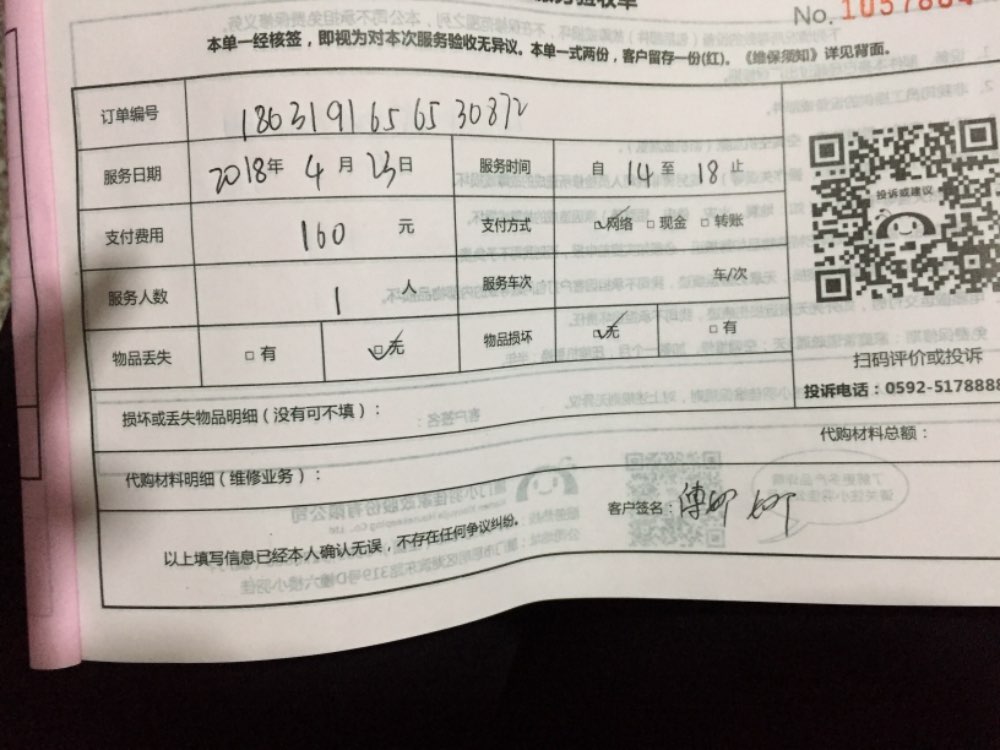 服务验收单
No. 1057864
本单一经核签，即视为对本次服务验收无异议。本单一式两份，客户留存一份(红)。《维保须知》详见背面。
订单编号 18631916565 30872
服务日期 2018年 4 月 23日 服务时间 自 14 至 18 止
投诉或建议
支付费用 160 元 支付方式 ☑网络 □ 现金 □ 转账
服务人数 1 人 服务车次 车/次
物品丢失 □ 有 ☑无 物品损坏 ☑无 □ 有
扫码评价或投诉
投诉电话：0592-5178888
损坏或丢失物品明细（没有可不填）：
代购材料总额：
代购材料明细（维修业务）：
客户签名：
以上填写信息已经本人确认无误，不存在任何争议纠纷。